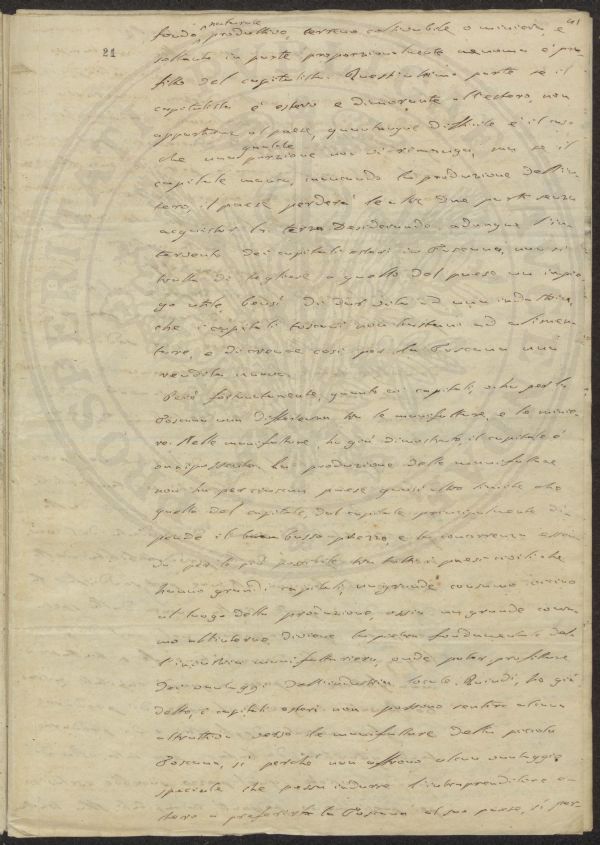 41
21
naturale
fondo produttivo, terreno coltivabile o miniera, e
soltanto in parte proporzionalmente al profitto
fitto del capitalista. Quest'ultima parte se il
capitalista è estero e dimorante all'estero, non
appartiene al paese, quantunque difficile è il caso
qualche
che una porzione non vi rimanga, ma se il
capitale manca, mancando la produzione dell'in
tero, il paese perderà le altre due parti senza
acquistar la terza. Desiderando adunque l'in
tervento dei capitali esteri in Toscana, non si
tratta di togliere a quello del paese un impie
go utile, bensì di dar vita ad una industria,
che i capitali toscani non bastano ad alimen
tare, e di creare così per la Toscana una
rendita nuova.
Però fortunatamente, quanto ai capitali, v'ha per la
Toscana una differenza tra le manifatture, e le minie
re. Nelle manifatture, ho già dimostrato, il capitale è
la produzione delle manifatture
non ha per ciascun paese quasi altro limite che
quello del capitale, dal capitale principalmente di
pende il basso prezzo, e la concorrenza essen
do per lo più possibile tra tutti i paesi civili che
hanno grandi capitali, un grande consumo vicino
al luogo della produzione, ossia un grande consu
mo all'interno, diviene la pietra fondamentale del
l'industria manifatturiera, onde poter profittare
dei vantaggi dell'industria locale. Quindi, ho già
detto, i capitali esteri non possono sentire alcuna
attrattiva verso le manifatture della piccola
Toscana, sì perché non offrono alcun vantaggio
speciale che possa indurre l'intraprenditore es
tero a preferire la Toscana al suo paese, sì per